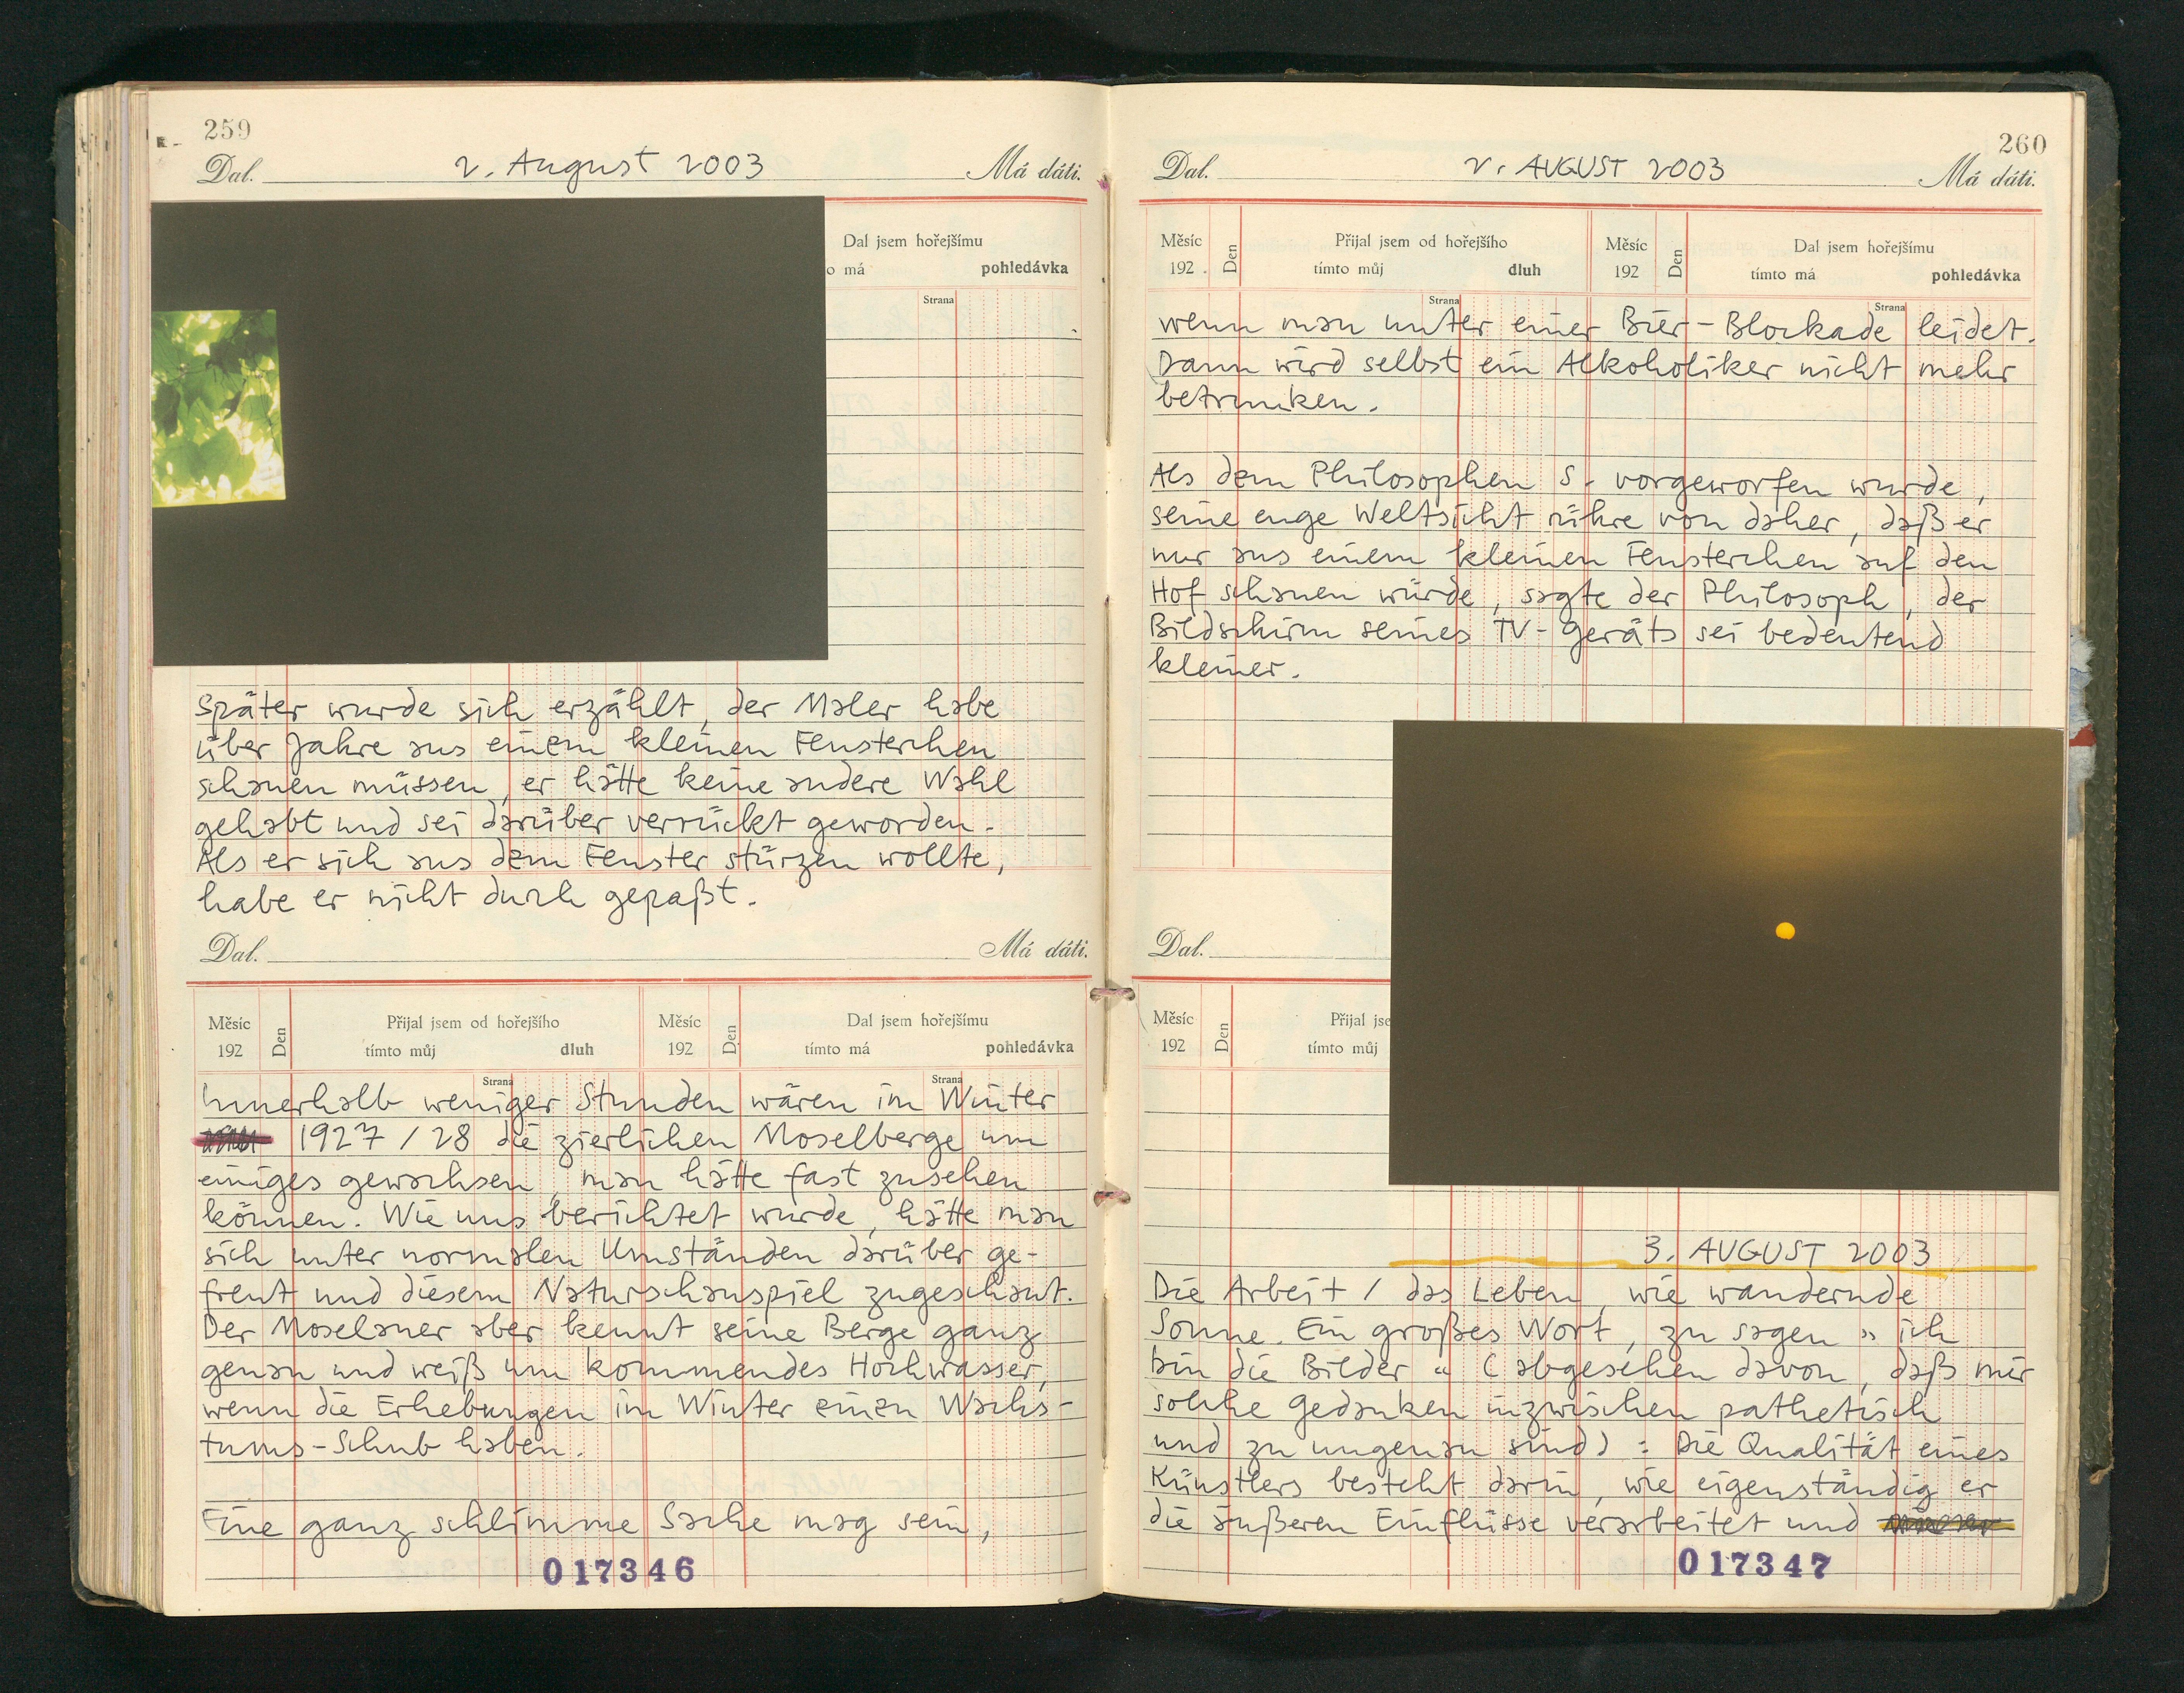 259
Dal. 2. August 2003 Má dáti.
Dal jsem hořejšímu
o má pohledávka
Strana
Später wurde sich erzählt, der Maler habe
über Jahre aus einem kleinen Fensterchen
schauen müssen, er hätte keine andere Wahl
gehabt und sei darüber verrückt geworden.
Als er sich aus dem Fenster stürzen wollte,
habe er nicht durch gepaßt.
Dal. Má dáti.
Měsíc Den Přijal jsem od hořejšího Měsíc Den Dal jsem hořejšímu
192 tímto můj dluh 192 tímto má pohledávka
Strana Strana
Innerhalb weniger Stunden wären im Winter
1927/28 die zierlichen Moselberge um
einiges gewachsen, man hätte fast zusehen
können. Wie uns berichtet wurde, hätte man
sich unter normalen Umständen darüber ge-
freut und diesem Naturschauspiel zugeschaut.
Der Moselaner aber kennt seine Berge ganz
genau und weiß um kommendes Hochwasser,
wenn die Erhebungen im Winter einen Wachs-
tums-Schub haben.
Eine ganz schlimme Sache mag sein,
017346
260
Dal. 2. AUGUST 2003 Má dáti.
Měsíc Den Přijal jsem od hořejšího Měsíc Den Dal jsem hořejšímu
192 . tímto můj dluh 192 tímto má pohledávka
Strana Strana
wenn man unter einer Bier-Blockade leidet.
Dann wird selbst ein Alkoholiker nicht mehr
betrunken.
Als dem Philosophen S. vorgeworfen wurde,
seine enge Weltsicht rühre von daher, daß er
nur aus einem kleinen Fensterchen auf den
Hof schauen würde, sagte der Philosoph, der
Bildschirm seines TV-Geräts sei bedeutend
kleiner.
Dal.
Měsíc Den Přijal jse
192 tímto můj
3. AUGUST 2003
Die Arbeit / das Leben, wie wandernde
Sonne. Ein großes Wort, zu sagen »ich
bin die Bilder« (abgesehen davon, daß mir
solche Gedanken inzwischen pathetisch
und zu ungenau sind): Die Qualität eines
Künstlers besteht darin, wie eigenständig er
die äußeren Einflüsse verarbeitet und
017347